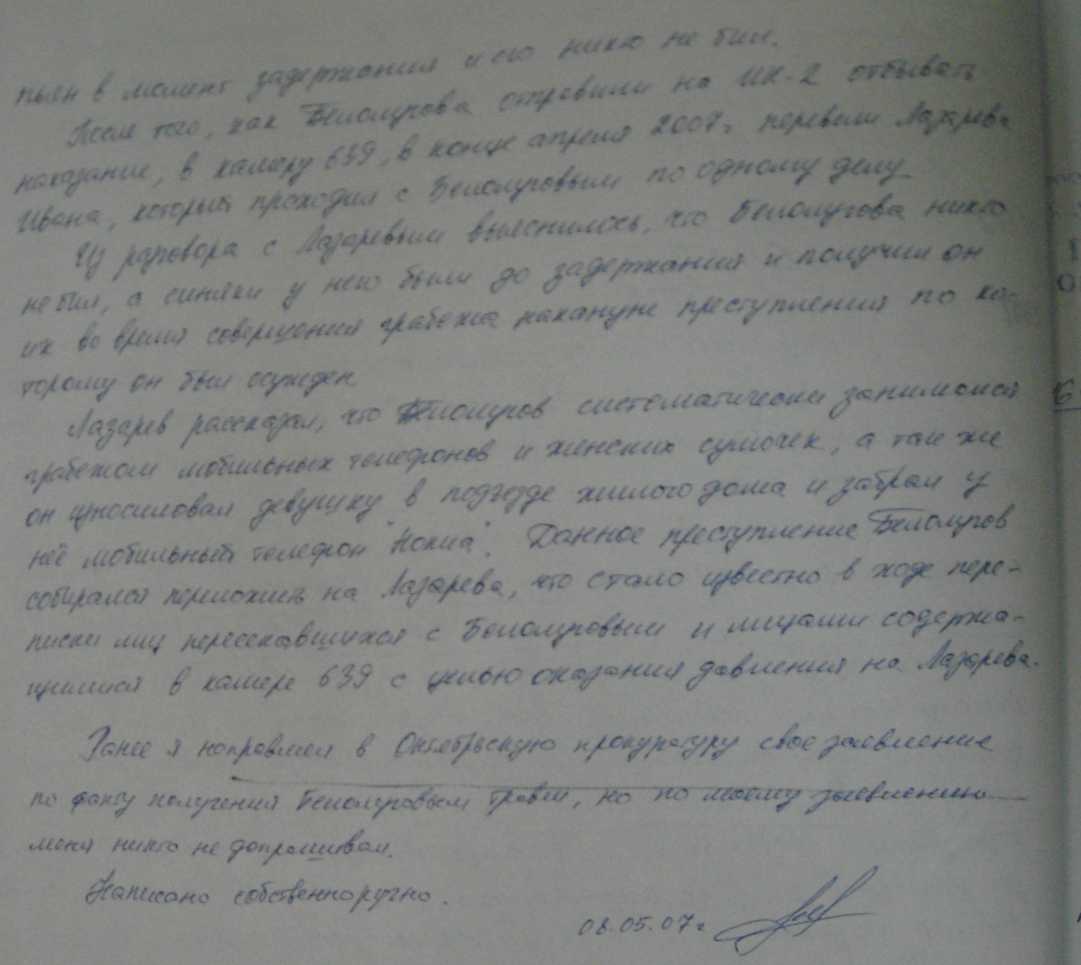 пьян в момент задержания и его никто не бил.
После того, как Белогурова отправили на ИК-2 отбывать
наказание, в камеру 639, в конце апреля 2007г перевели Лазарева
Ивана, который проходил с Белогуровым по одному делу.
Из разговора с Лазаревым выяснилось, что Белогурова никто
не бил, а синяки у него были до задержания и получил он
их во время совершения грабежа накануне преступления по ко-
торому он был осужден.
Лазарев рассказал, что Белогуров систематически занимался
грабежом мобильных телефонов и женских сумочек, а так же
он изнасиловал девушку в подъезде жилого дома и забрал у
неё мобильный телефон "Нокиа". Данное преступление Белогуров
собирался переложить на Лазарева, что стало известно в ходе пере-
писки лиц пересекавшихся с Белогуровым и лицами содержа-
щимися в камере 639 с целью оказания давления на Лазарева.
Ранее я направлял в Октябрьскую прокуратуру свое заявление
по факту получения Белогуровым травм, но по моему заявлению
меня никто не допрашивал.
Написано собственноручно.
08.05.07г